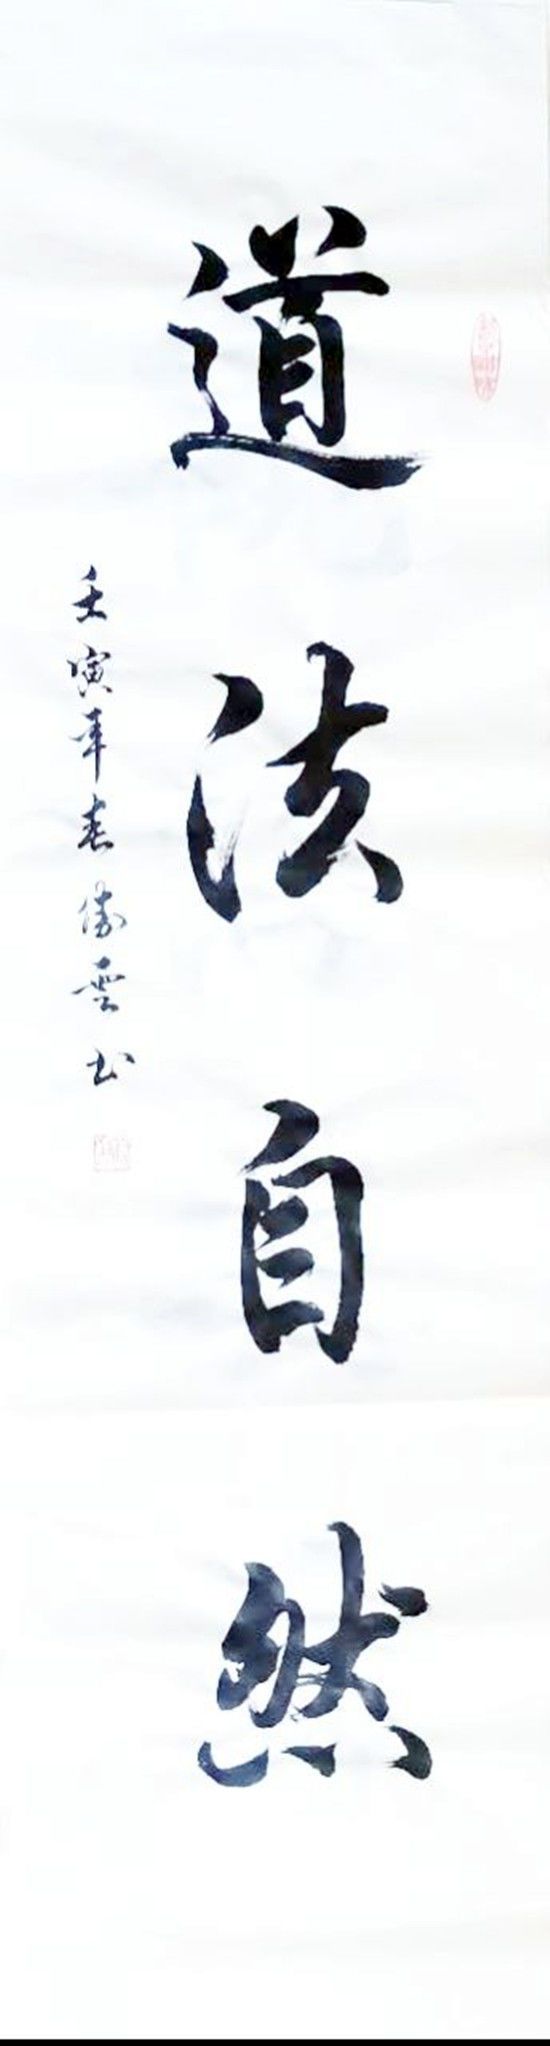 道法自然
壬寅年春 雲书